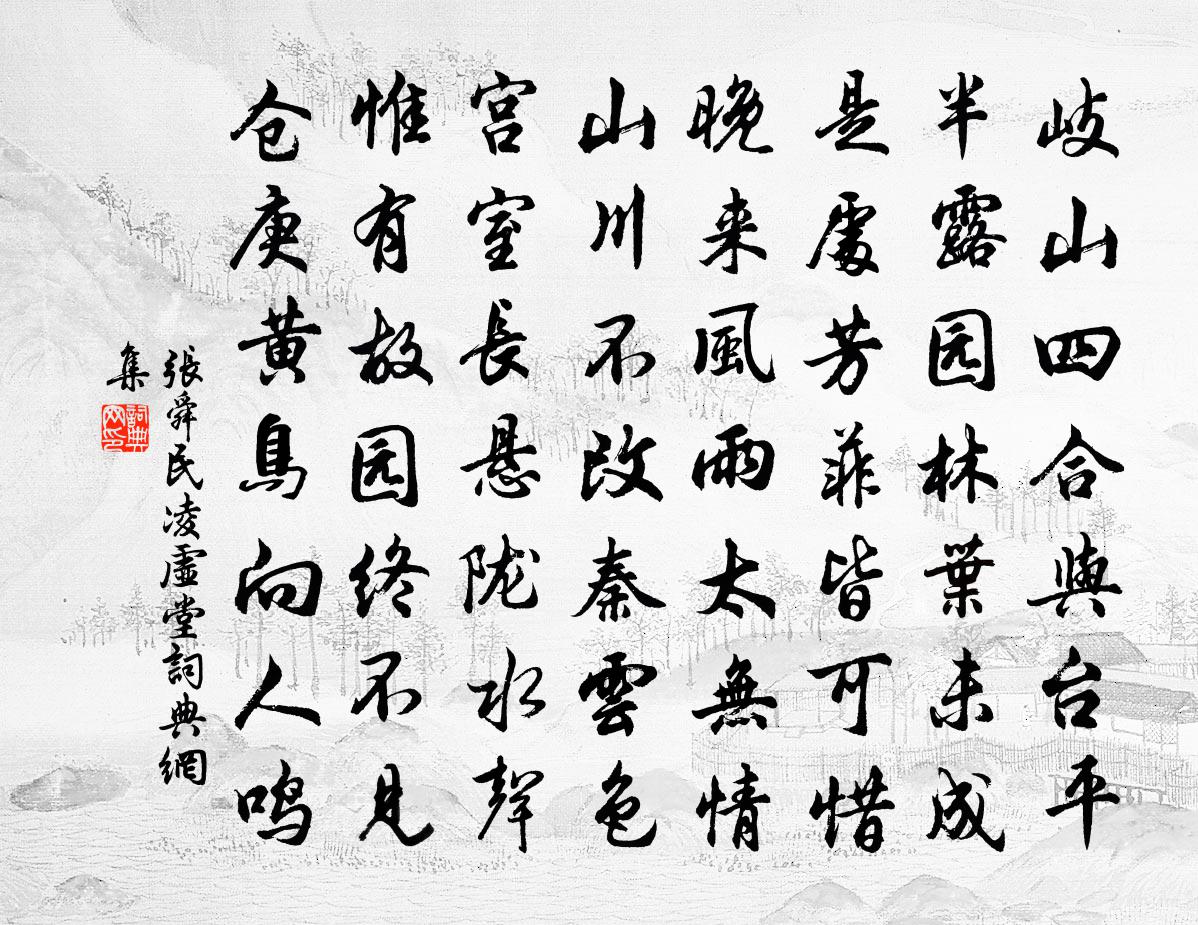 岐山四合與台平
半露园林葉未成
是處芳菲皆可惜
晚来風雨太無情
山川不改秦雲色
宫室長悬陇水聲
惟有故园终不見
仓庚黄鳥向人鸣
張舜民凌虛堂詞典網
集
詞典
网印